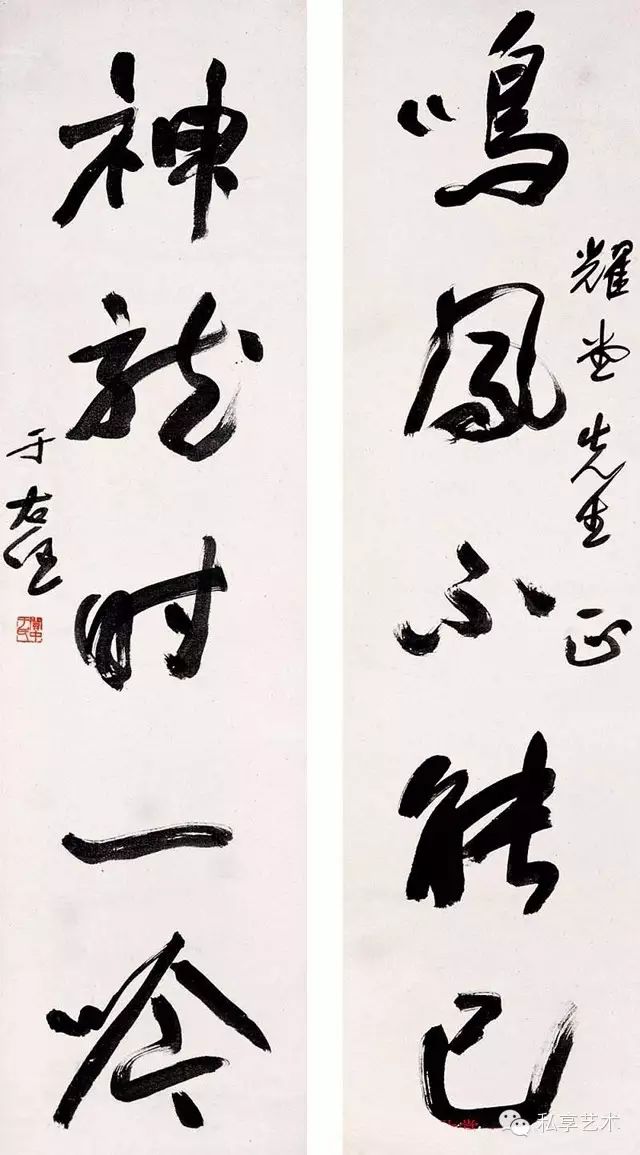 鳴鳳不能已
耀堂先生正
神龍時一吟
于右任
關中于氏
私享艺术